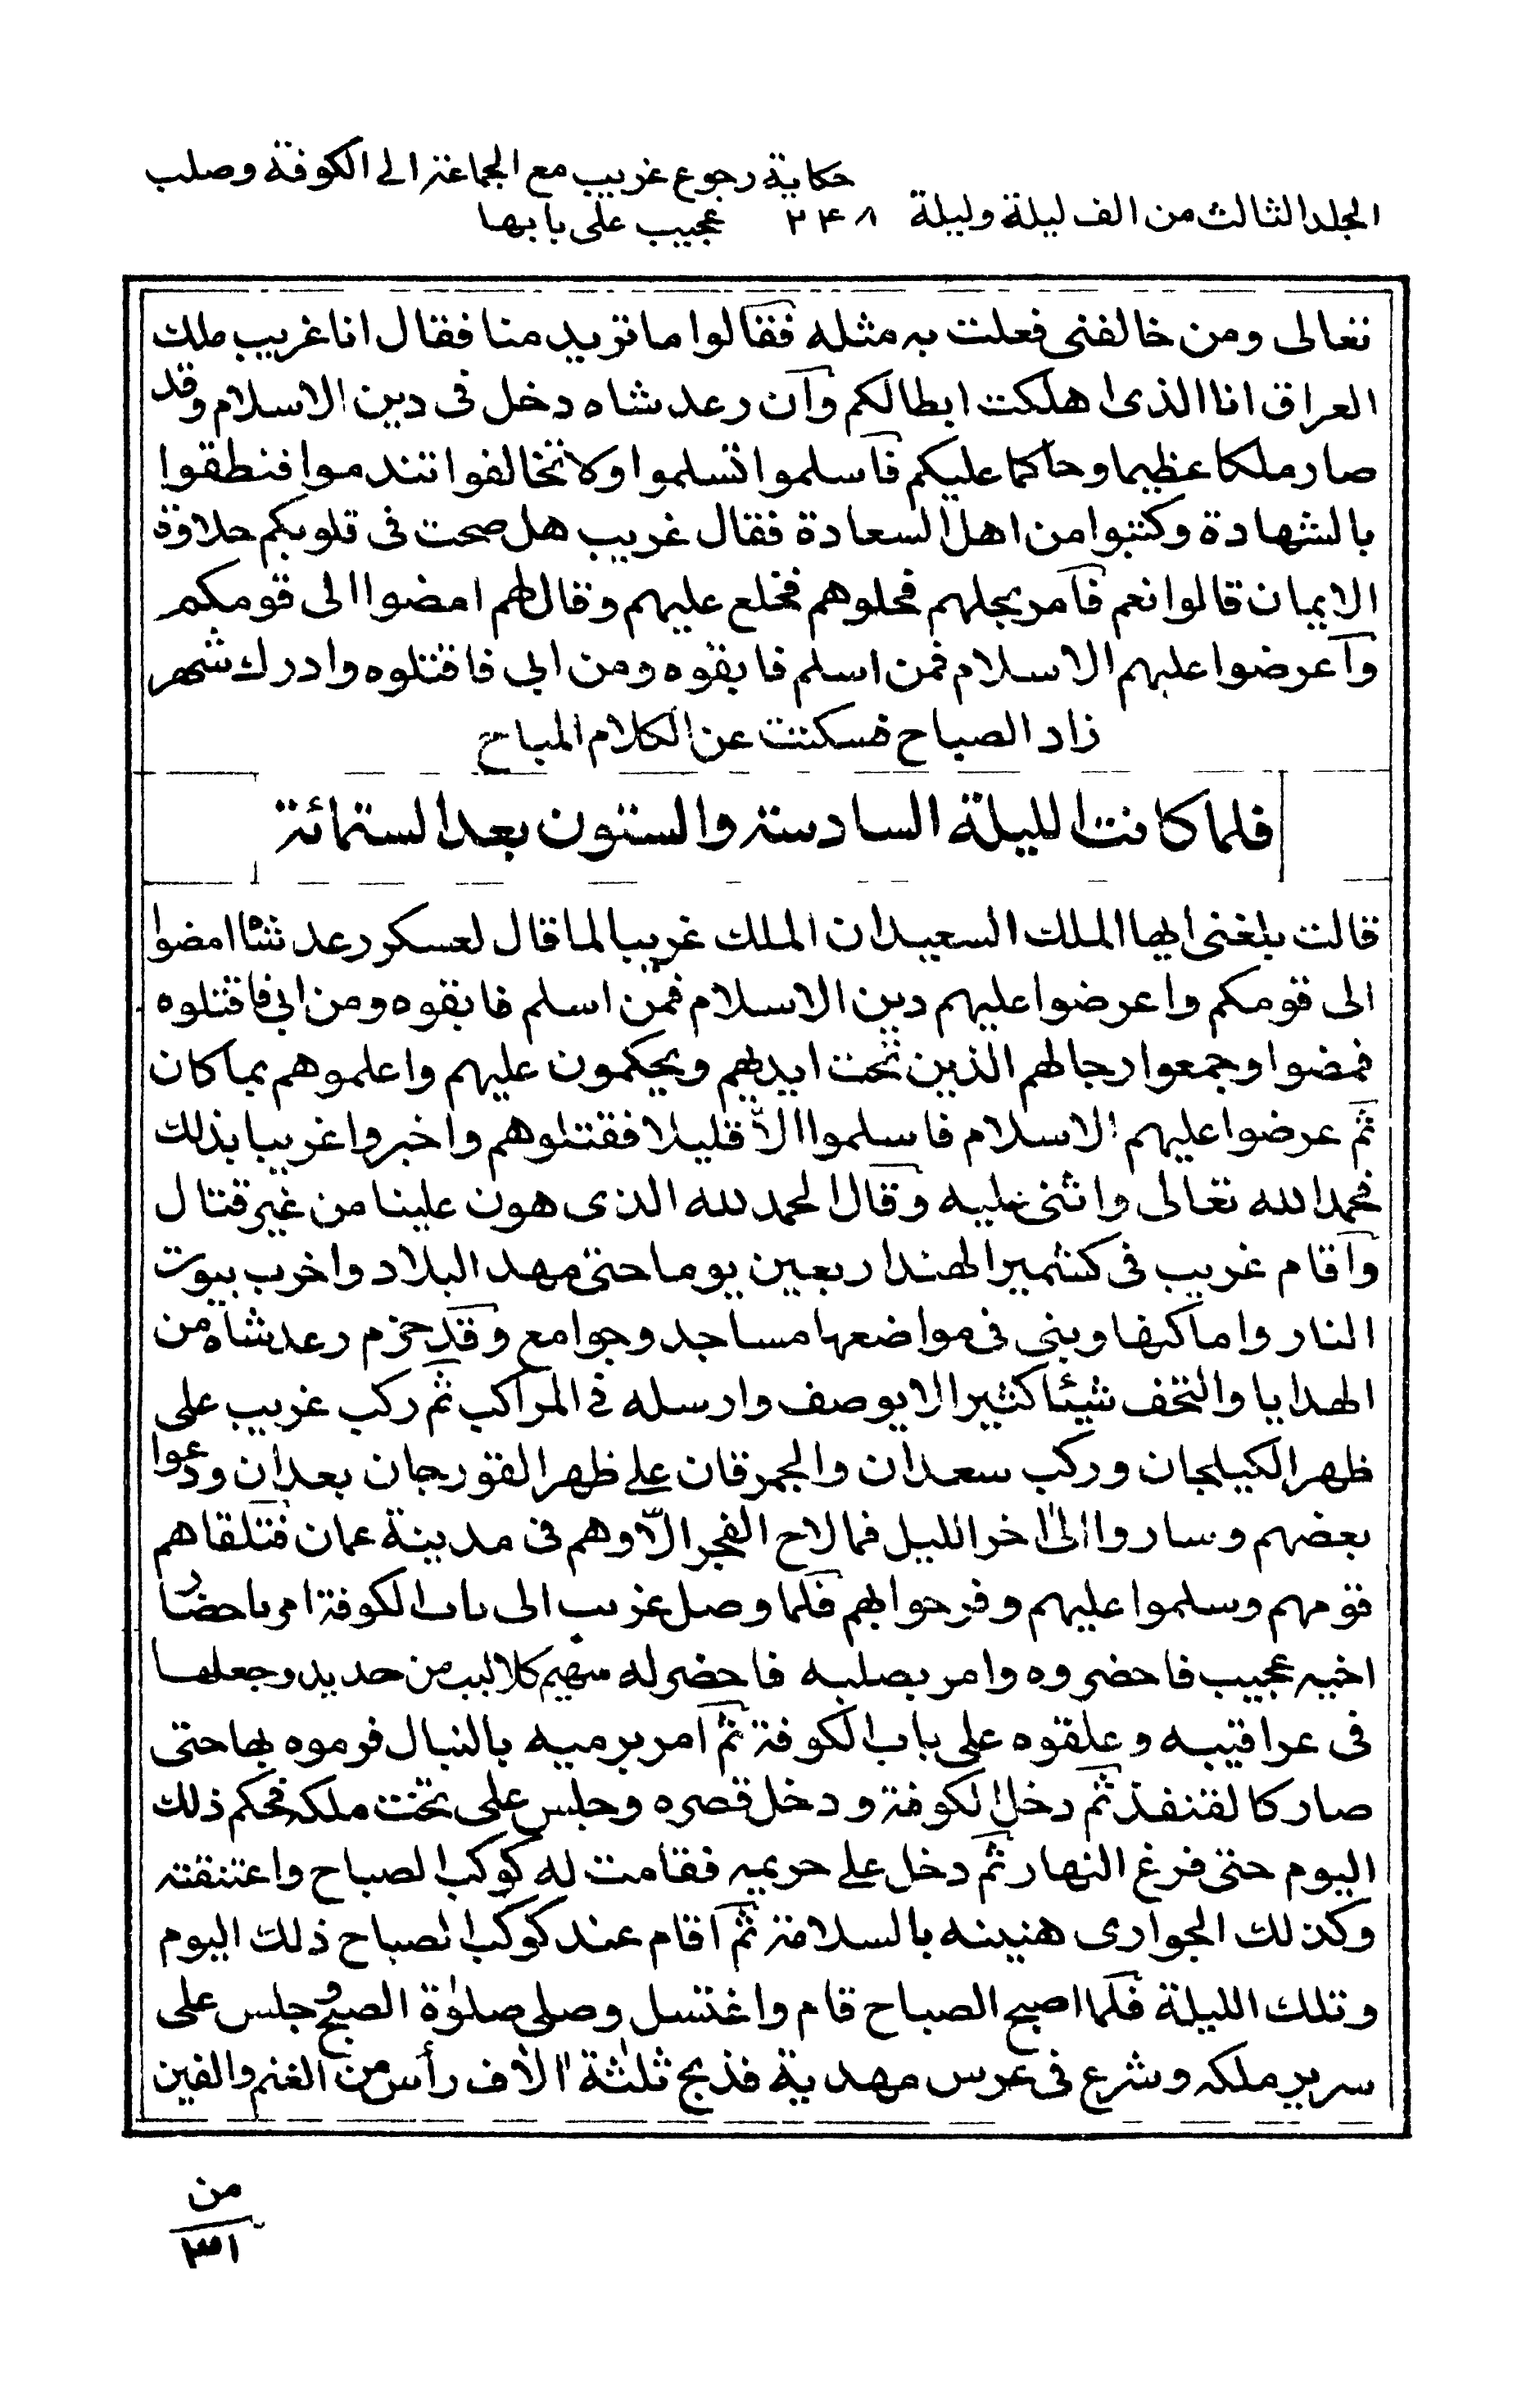 حكاية رجوع غريب مع الجماعة الى الكوفة وصلب
المجلد الثالث من الف ليلة وليلة ٢٤٨ عجيب على بابها
تعالى ومن خالفنى فعلت به مثله فقالوا ما تريد منا فقال انا غريب ملك
العراق انا الذى اهلكت ابطالكم وآن رعد شاه دخل فى دين الاسلام وقد
صار ملكا عظيما وحاكما عليكم فآسلموا تسلموا ولا تخالفوا تندموا فنطقوا
بالشهادة وكتبوا من اهل السعادة فقال غريب هل صحت فى قلوبكم حلاوة
الايمان قالوا نعم فآمر بحلهم فحلوهم فخلع عليهم وقال لهم امضوا الى قومكم
وآعرضوا عليهم الاسلام فمن اسلم فابقوه ومن ابى فاقتلوه وادرك شهر
زاد الصباح فسكتت عن الكلام المباح
فلما كانت الليلة السادسة والستون بعد الستمائة
قالت بلغنى ايها الملك السعيد ان الملك غريبا لما قال لعسكر رعد شاه امضوا
الى قومكم واعرضوا عليهم دين الاسلام فمن اسلم فابقوه ومن ابى فاقتلوه
فمضوا وجمعوا رجالهم الذين تحت ايديهم ويحكمون عليهم واعلموهم بما كان
ثم عرضوا عليهم الاسلام فاسلموا الّا قليلا فقتلوهم واخبروا غريبا بذلك
فحمد الله تعالى واثنى عليه وقال الحمد لله الذى هون علينا من غير قتال
وآقام غريب فى كشمير الهند اربعين يوما حتى مهد البلاد واخرب بيوت
النار واماكنها وبنى فى مواضعها مساجد وجوامع وقد حزم رعد شاه من
الهدايا والتحف شيئا كثيرا لا يوصف وارسله فى المراكب ثم ركب غريب على
ظهر الكيلجان وركب سعدان والجمرقان على ظهر القورجان بعد ان ودعوا
بعضهم وساروا الى اٰخر الليل فما لاح الفجر الّا وهم فى مدينة عمان فتلقاهم
قومهم وسلموا عليهم وفرحوا بهم فلما وصل غريب الى باب الكوفة امر باحضار
اخيه عجيب فاحضروه وامر بصلبه فاحضر له سهيم كلاليب من حديد وجعلها
فى عراقيبه وعلقوه على باب الكوفة ثم آمر برميه بالنبال فرموه بها حتى
صار كالقنفذ ثم دخل الكوفة ودخل قصره وجلس على تخت ملكه فحكم ذلك
اليوم حتى فرغ النهار ثم دخل على حريمه فقامت له كوكب الصباح واعتنقته
وكذلك الجوارى هنينه بالسلامة ثم آقام عند كوكب الصباح ذلك اليوم
وتلك الليلة فلما اصبح الصباح قام واغتسل وصلى صلوٰة الصبح وجلس على
سرير ملكه وشرع فى عرس مهدية فذبح ثلٰثة اٰلاف رأس من الغنم والفين
من
٣١